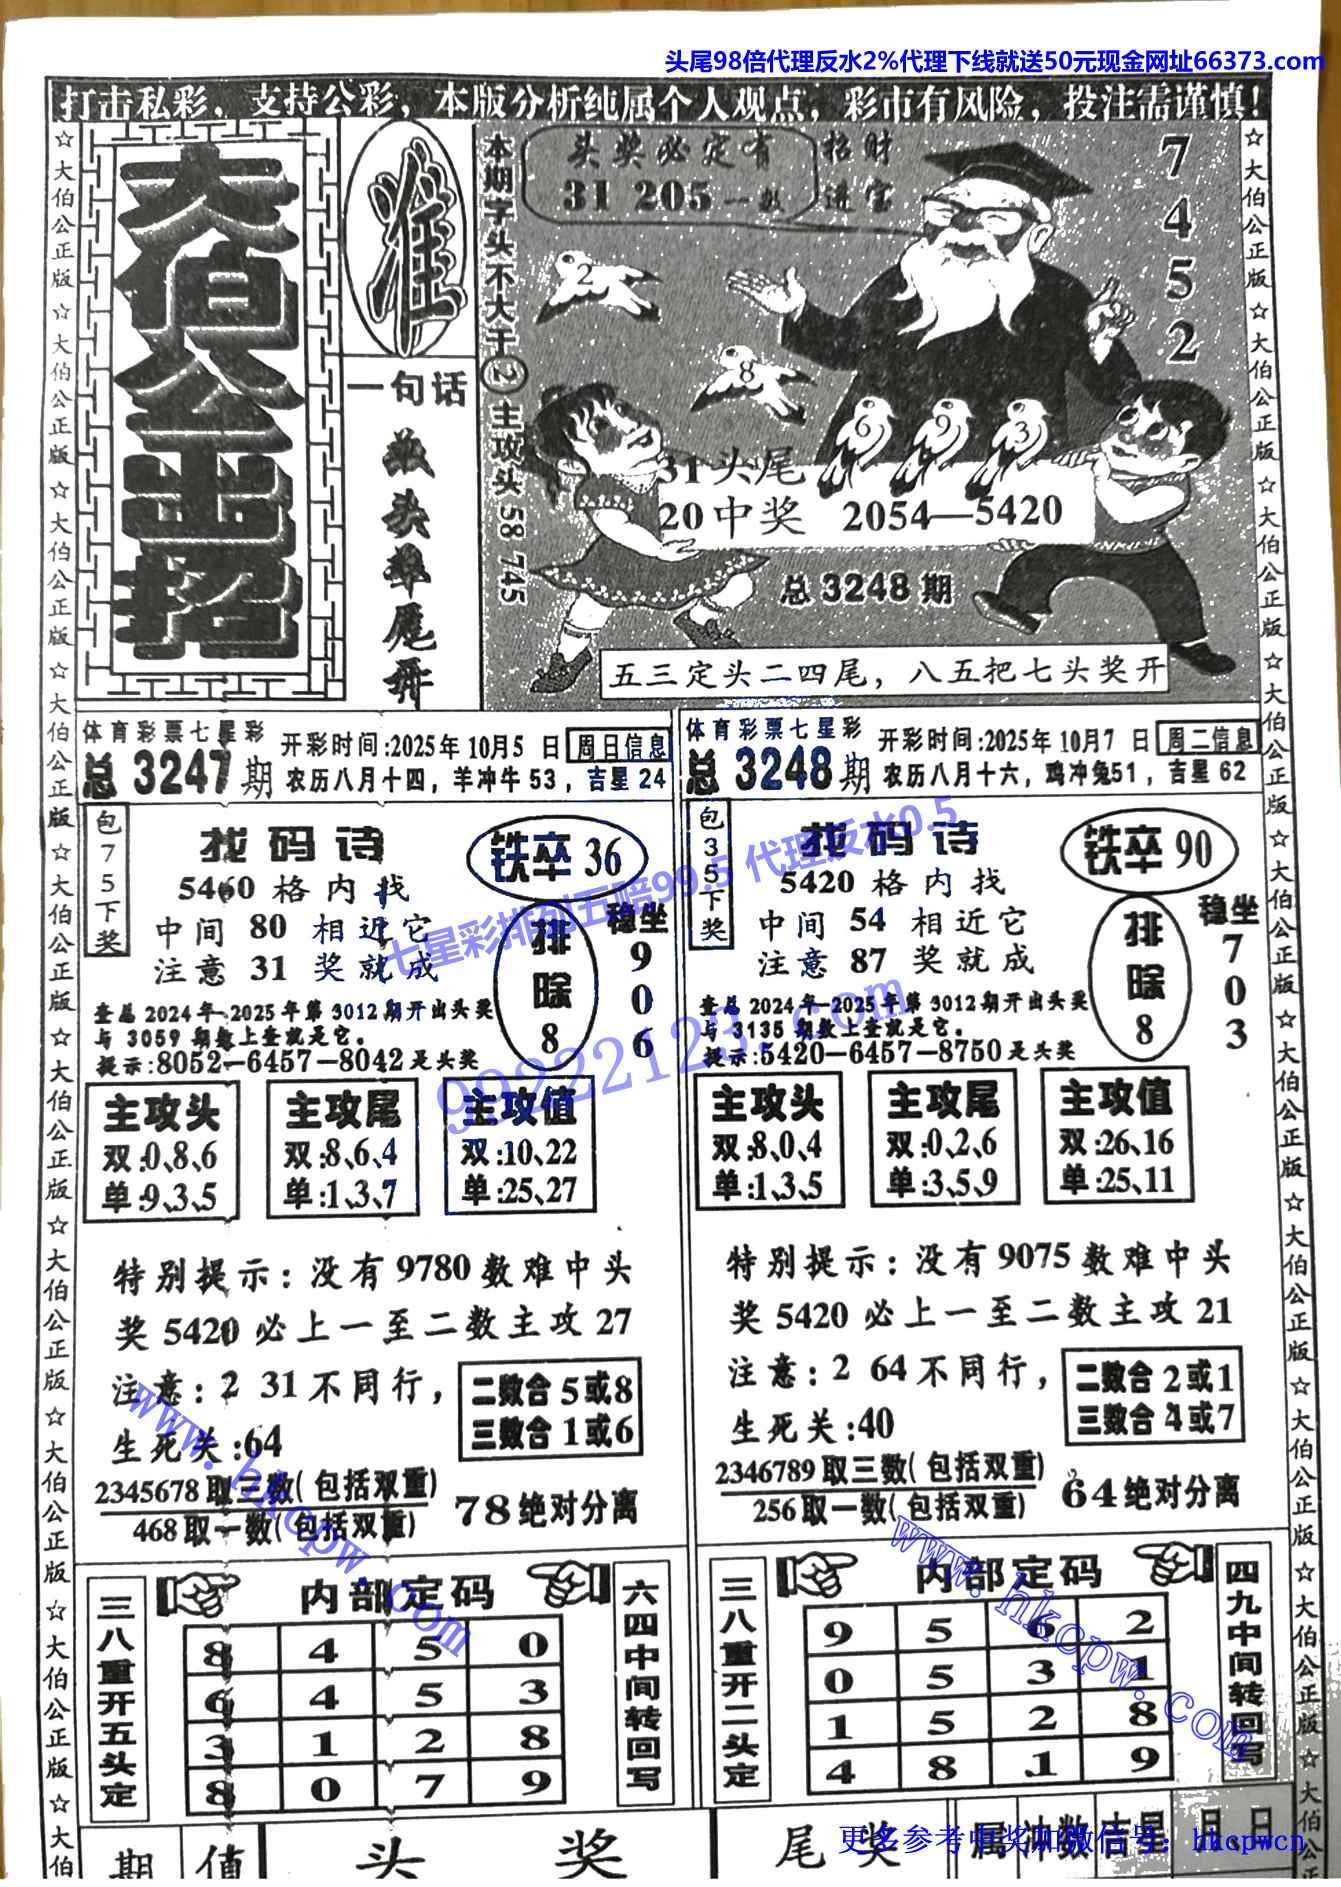 头尾98倍代理反水2%代理下线就送50元现金网址66373.com
打击私彩，支持公彩，本版分析纯属个人观点，彩市有风险，投注需谨慎！
☆大伯公正版☆大伯公正版☆大伯公正版☆大伯公正版☆大伯公正版☆大伯公正版☆大伯公正版☆大伯公正版☆大伯公正版☆大伯
大伯公出招
准
一句话
头 尾开
本期字头不大于2主攻头58 745
头奖必定有
31 205一数
招财
进宝
7
4
5
2
2
8
6 9 3
31头尾
20中奖 2054—5420
总3248期
五三定头二四尾，八五把七头奖开
体育彩票七星彩
总3247期
开彩时间:2025年10月5日 周日信息
农历八月十四，羊冲牛53，吉星24
包75下奖
找码诗
5460格内找
中间80相近它
注意31奖就成
铁卒36
排除8
稳坐906
查总2024年-2025年第3012期开出头奖
与3059期数上查就是它。
提示:8052—6457—8042是头奖
主攻头
双:0、8、6
单:9、3、5
主攻尾
双:8、6、4
单:1、3、7
主攻值
双:10、22
单:25、27
特别提示：没有9780数难中头
奖5420必上一至二数主攻27
注意：2 31不同行，
生死关:64
二数合5或8
三数合1或6
2345678取三数(包括双重)
468取一数(包括双重)
78绝对分离
三八重开五头定
内部定码
8 4 5 0
6 4 5 3
3 1 2 8
8 0 7 9
六四中间转回写
体育彩票七星彩
总3248期
开彩时间:2025年10月7日 周二信息
农历八月十六，鸡冲兔51，吉星62
包35下奖
找码诗
5420格内找
中间54相近它
注意87奖就成
铁卒90
排除8
稳坐703
查总2024年-2025年第3012期开出头奖
与3135期数上查就是它。
提示:5420—6457—8750是头奖
主攻头
双:8、0、4
单:1、3、5
主攻尾
双:0、2、6
单:3、5、9
主攻值
双:26、16
单:25、11
特别提示：没有9075数难中头
奖5420必上一至二数主攻21
注意：2 64不同行，
生死关:40
二数合2或1
三数合4或7
2346789取三数(包括双重)
256取一数(包括双重)
64绝对分离
三八重开二头定
内部定码
9 5 6 2
0 5 3 1
1 5 2 8
4 8 1 9
四九中间转回写
期 值 头 奖 尾 奖 属 冲 数 吉星 月、日
☆大伯公正版☆大伯公正版☆大伯公正版☆大伯公正版☆大伯公正版☆大伯公正版☆大伯公正版☆大伯公正版☆大伯公正版☆大伯公正
七星彩排列五赔99.5 代理反水0.5
99222123.com
www.hkcpw.com
www.hkcpw.com
更多参考中奖加微信号：hkcpwcn